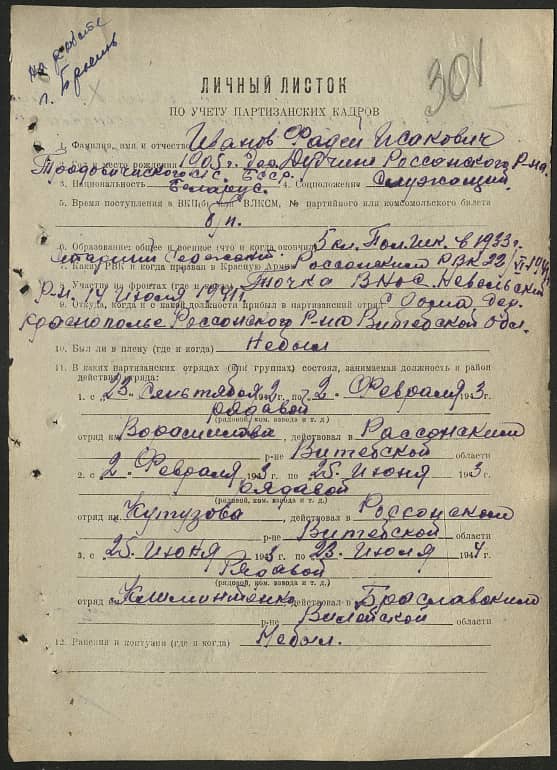 на работе
г. Брест
301
ЛИЧНЫЙ ЛИСТОК
ПО УЧЕТУ ПАРТИЗАНСКИХ КАДРОВ
1. Фамилия, имя и отчество Иванов Фадей Исакович
2. Год и место рождения 1905 г. дер. Россонского р-на.
с/с. БССР.
3. Национальность Беларус. 4. Соцположение Служащий.
5. Время поступления в ВКП(б) или ВЛКСМ, № партийного или комсомольского билета
б/п.
6. Образование: общее и военное (что и когда окончил) 6 кл. в 1933 г.
7. Каким РВК и когда призван в Красную Армию Россонским РВК 22/VI-1941
8. Участие на фронтах (где и когда) Точка ВНОС Невельский
р-н. 14 июля 1941 г.
9. Откуда, когда и с какой должности прибыл в партизанский отряд С дома, дер.
Краснополье Россонского р-на Витебской обл.
10. Был ли в плену (где и когда) Небыл
11. В каких партизанских отрядах (или группах) состоял, занимаемая должность и район
действий отряда:
1. с 23. Сентября 1942 г. по 2. Февраля 1943 г.
рядавой
(рядовой, ком. взвода и т. д.)
отряд им. Ворашилова, действовал в Рассонским
р-не Витебской области
2. с 2. Февраля 1943 г. по 25. Июня 1943 г.
рядавой
(рядовой, ком. взвода и т. д.)
отряд им. Кутузова, действовал в Россонским
р-не Витебской области
3. с 25. Июня 1943 г. по 23. Июля 1944 г.
Рядавой
(рядовой, ком. взвода и т. д.)
отряд действовал в Браславским
р-не Вилейской области
12. Ранения и контузии (где и когда) Небыл.